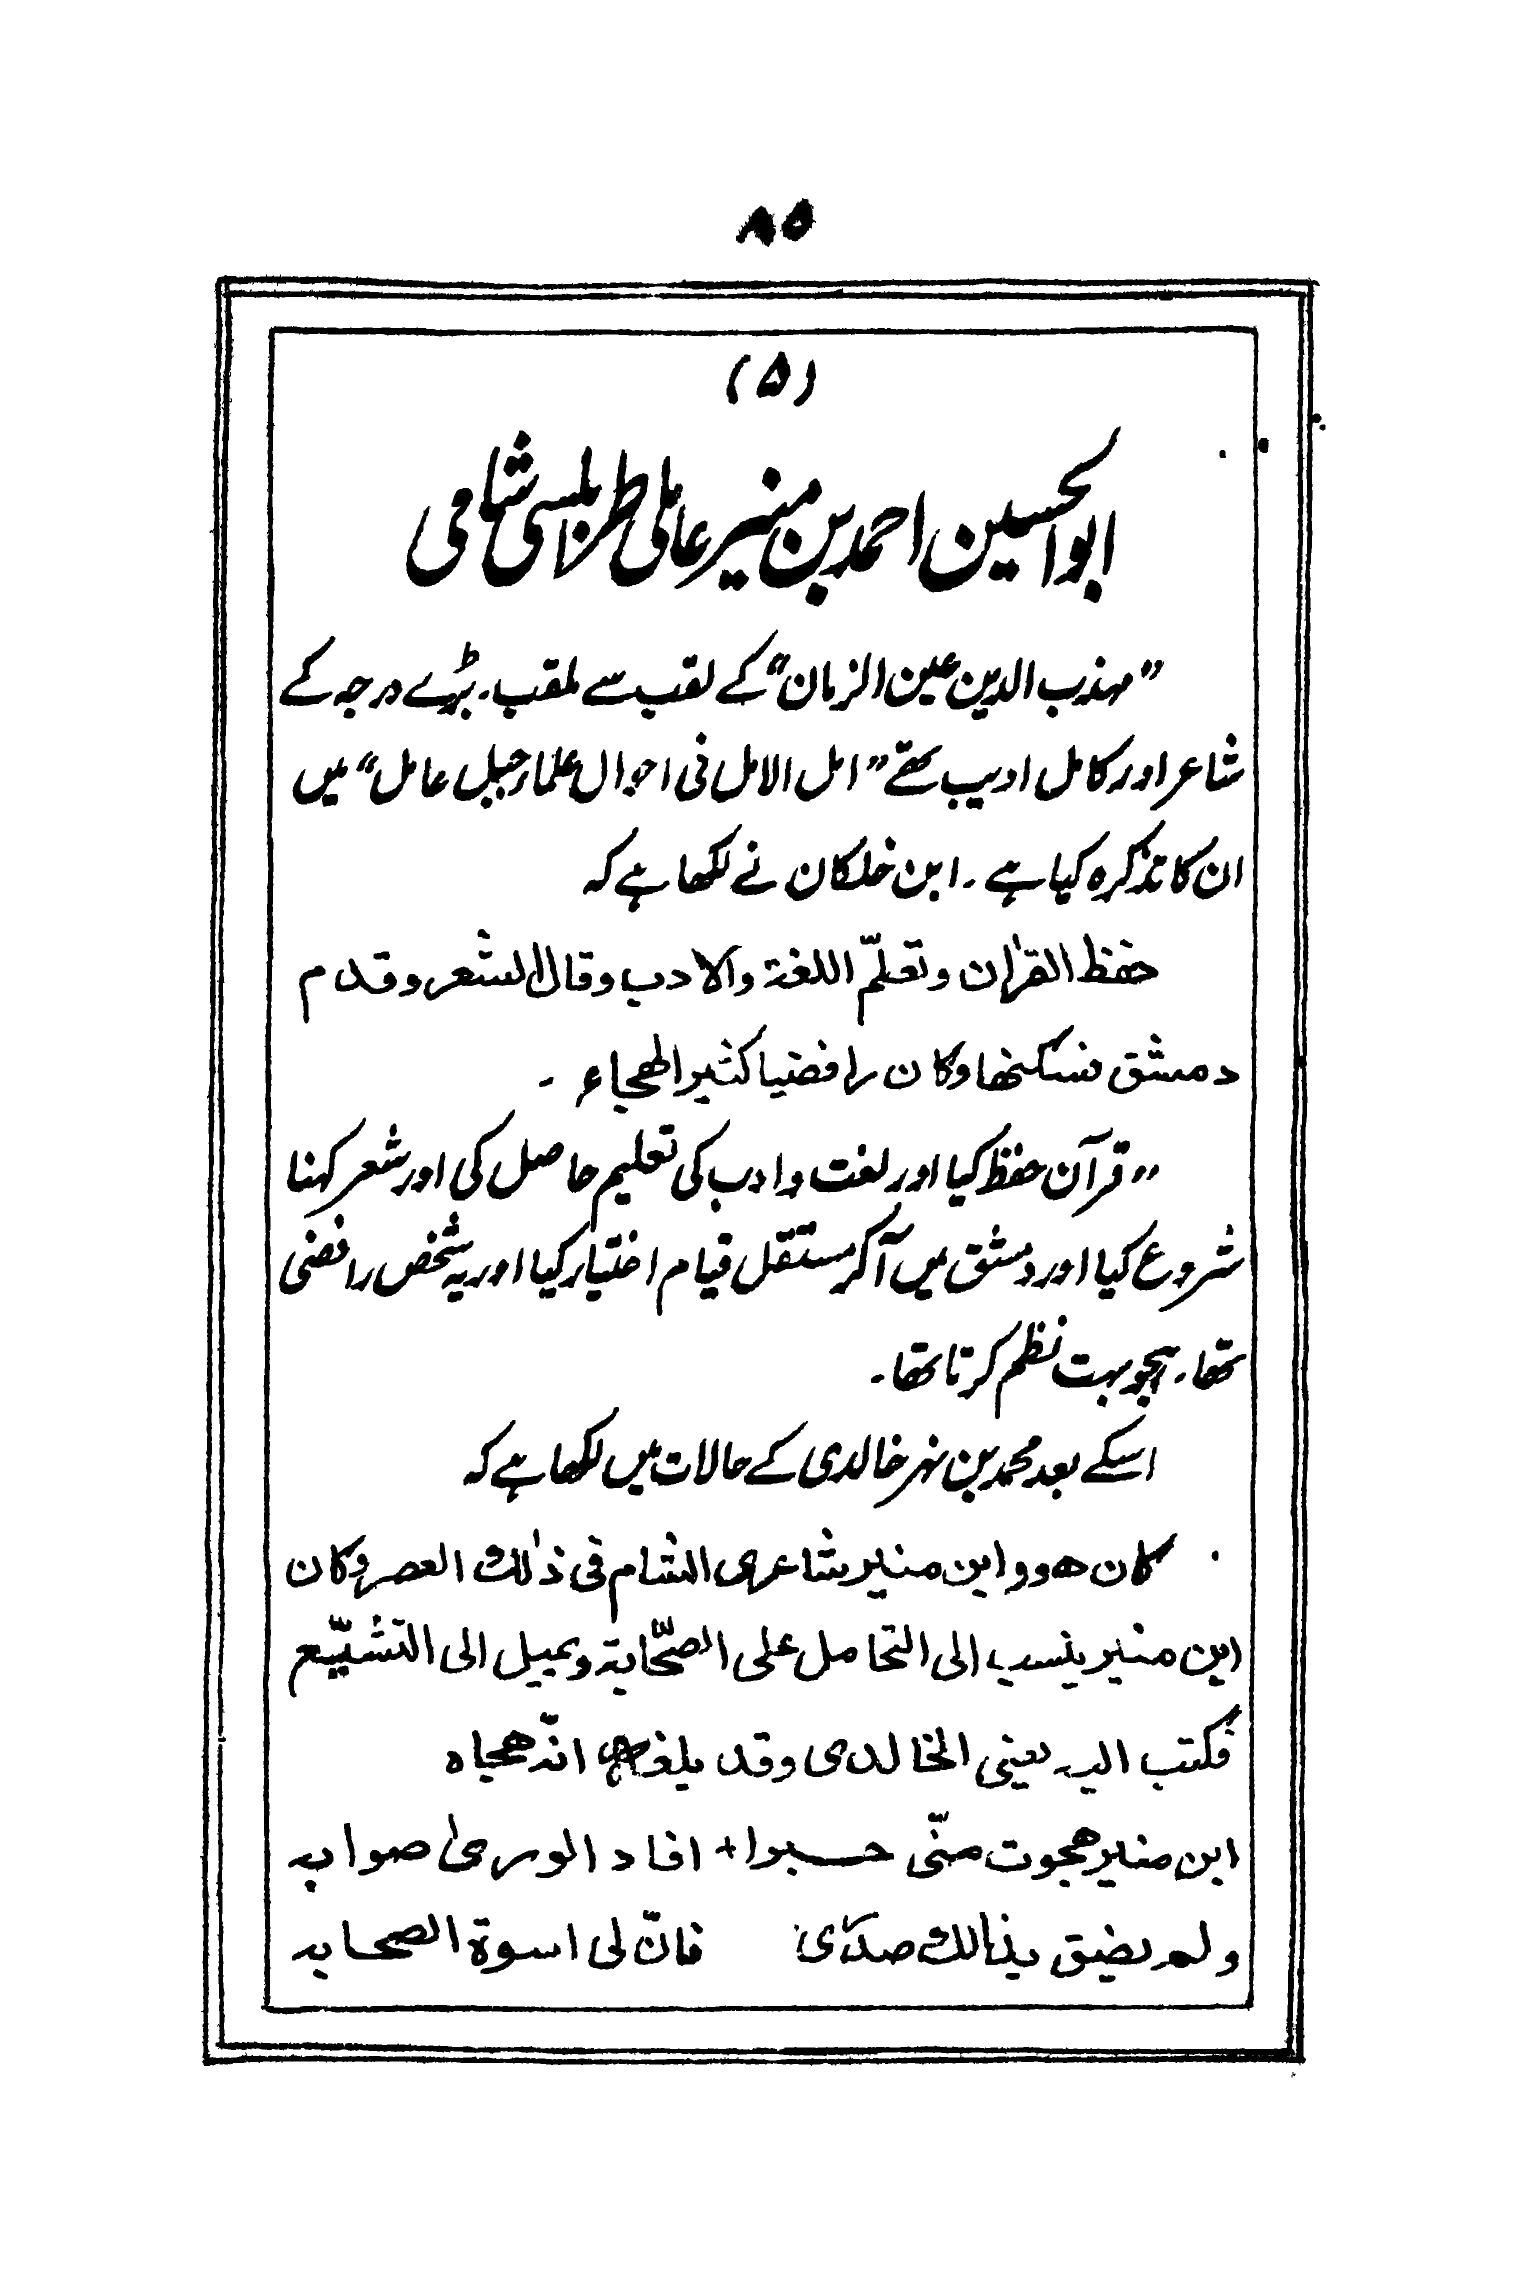 ۸۵
(۵)
ابوالحسین احمد بن منیر عاملی طرابلسی شامی
”مہذب الدین عین الزمان“ کے لقب سے ملقب۔ بڑے درجہ کے
شاعر اور کامل ادیب تھے ”امل الامل فی احوال علماء جبل عامل“ میں
ان کا تذکرہ کیا ہے۔ ابن خلکان نے لکھا ہے کہ
حفظ القرٰان وتعلّم اللغة والادب وقال الشعر وقدم
دمشق فسکنھا وکان رافضیا کثیر الھجاء ۔
”قرآن حفظ کیا اور لغت و ادب کی تعلیم حاصل کی اور شعر کہنا
شروع کیا اور دمشق میں آکر مستقل قیام اختیار کیا اور یہ شخص رافضی
تھا۔ ہجو بہت نظم کرتا تھا۔
اسکے بعد محمد بن نہر خالدی کے حالات میں لکھا ہے کہ
کان ھو وابن منیر شاعری الشام فی ذٰلک العصر وکان
ابن منیر ینسب الی التحامل علی الصّحابة ویمیل الی التشیّع
فکتب الیہ یعنی الخالدی وقد بلغہ انّہ ھجاہ
ابن منیر ھجوت منّی حبرا + افاد الوریٰ صوابہ
ولم یضق بذالک صدری فانّ لی اسوة الصحابہ